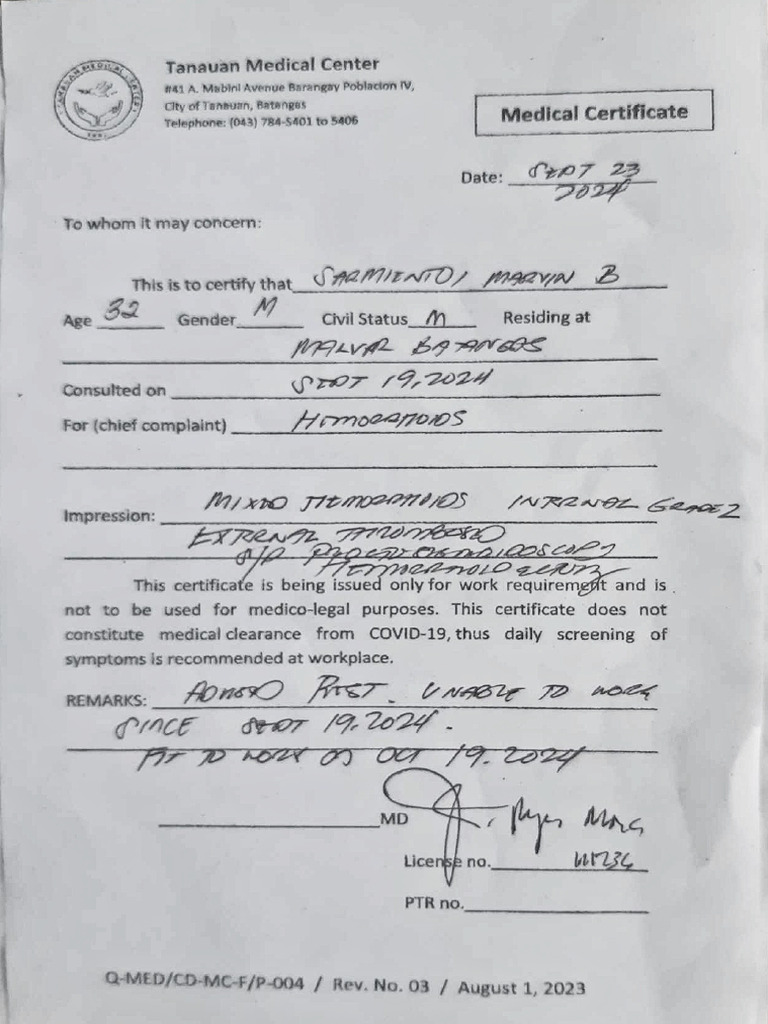 TANAUAN MEDICAL CENTER
Tanauan Medical Center
#41 A. Mabini Avenue Barangay Poblacion IV,
City of Tanauan, Batangas
Telephone: (043) 784-5401 to 5406
Medical Certificate
Date: SEPT 23
2024
To whom it may concern:
This is to certify that SARMIENTO, MARVIN B
Age 32 Gender M Civil Status M Residing at
MALVAR BATANGAS
Consulted on SEPT 19, 2024
For (chief complaint) HEMORRHOIDS
Impression: MIXED HEMORRHOIDS INTERNAL GRADE 2
EXTERNAL THROMBOSED
S/P PROCTOSIGMOIDOSCOPY
This certificate is being issued only for work requirement and is
not to be used for medico-legal purposes. This certificate does not
constitute medical clearance from COVID-19, thus daily screening of
symptoms is recommended at workplace.
REMARKS: ADVISED REST. UNABLE TO WORK
SINCE SEPT 19, 2024.
FIT TO WORK ON OCT 19, 2024
MD
License no.
PTR no.
Q-MED/CD-MC-F/P-004 / Rev. No. 03 / August 1, 2023